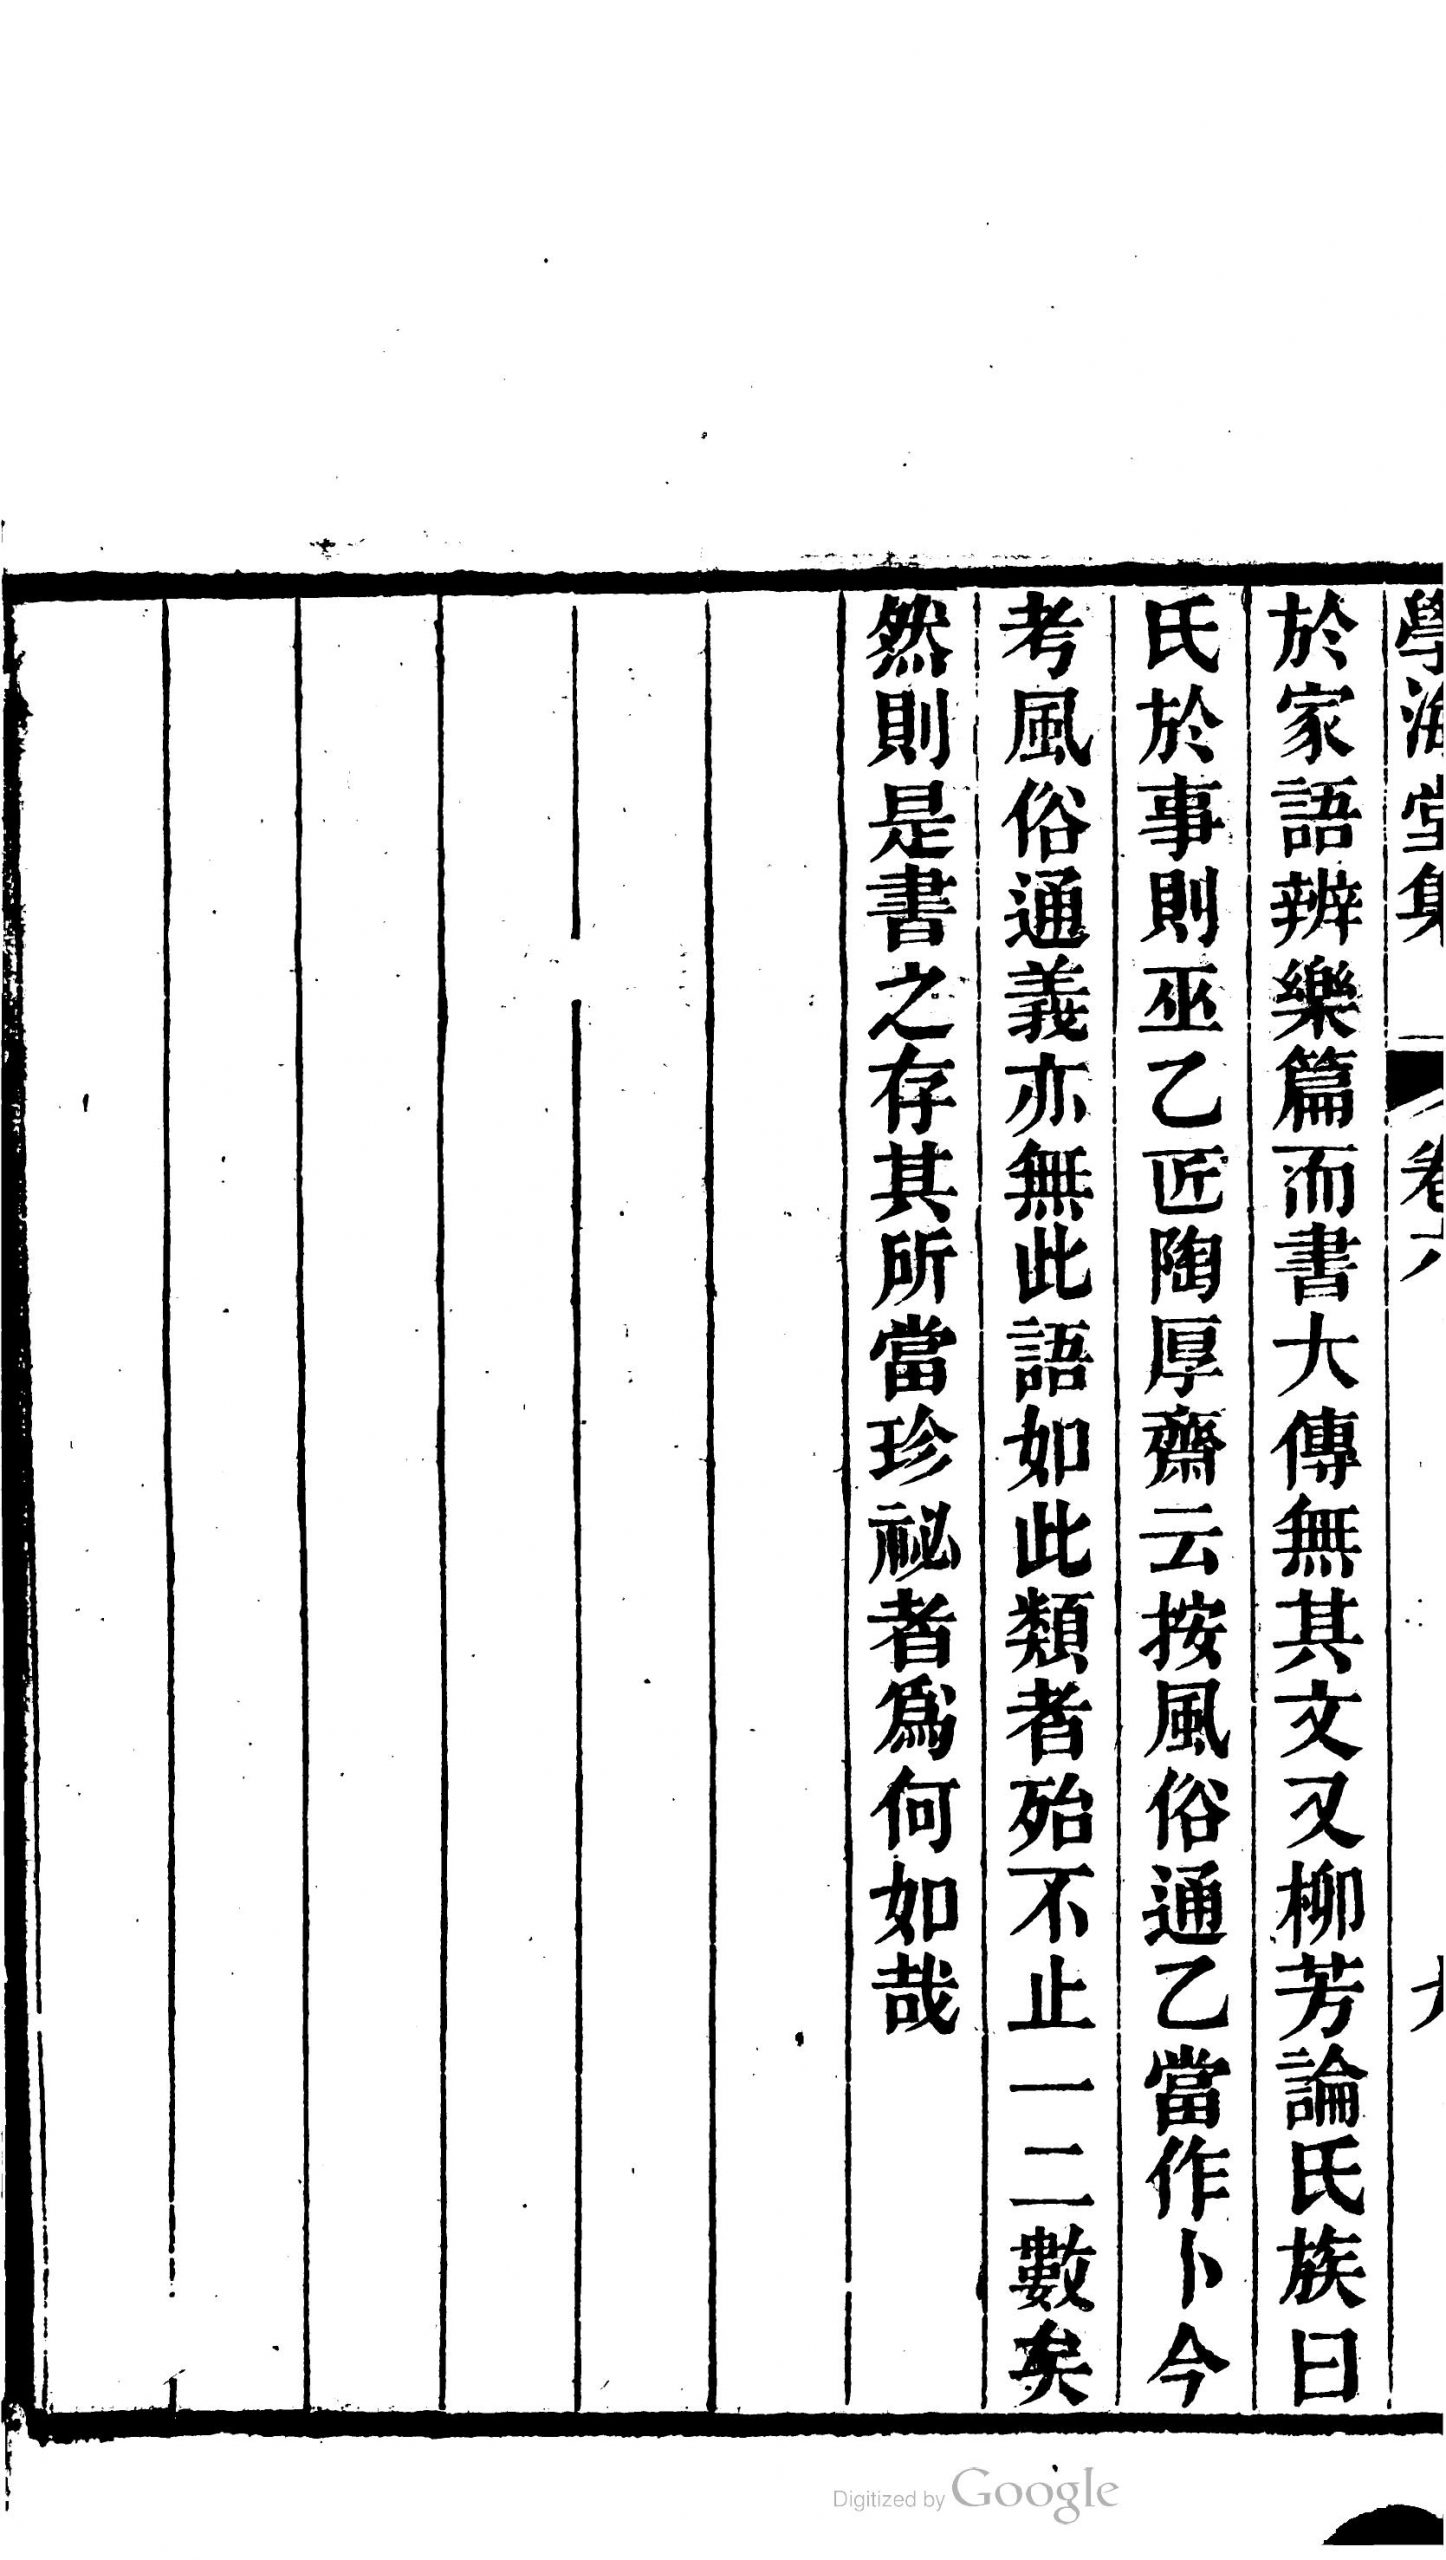 學海堂集 卷六
於家語辨樂篇而書大傳無其文又柳芳論氏族曰
氏於事則巫乙匠陶厚齋云按風俗通乙當作卜今
考風俗通義亦無此語如此類者殆不止一二數矣
然則是書之存其所當珍祕者爲何如哉
Digitized by Google